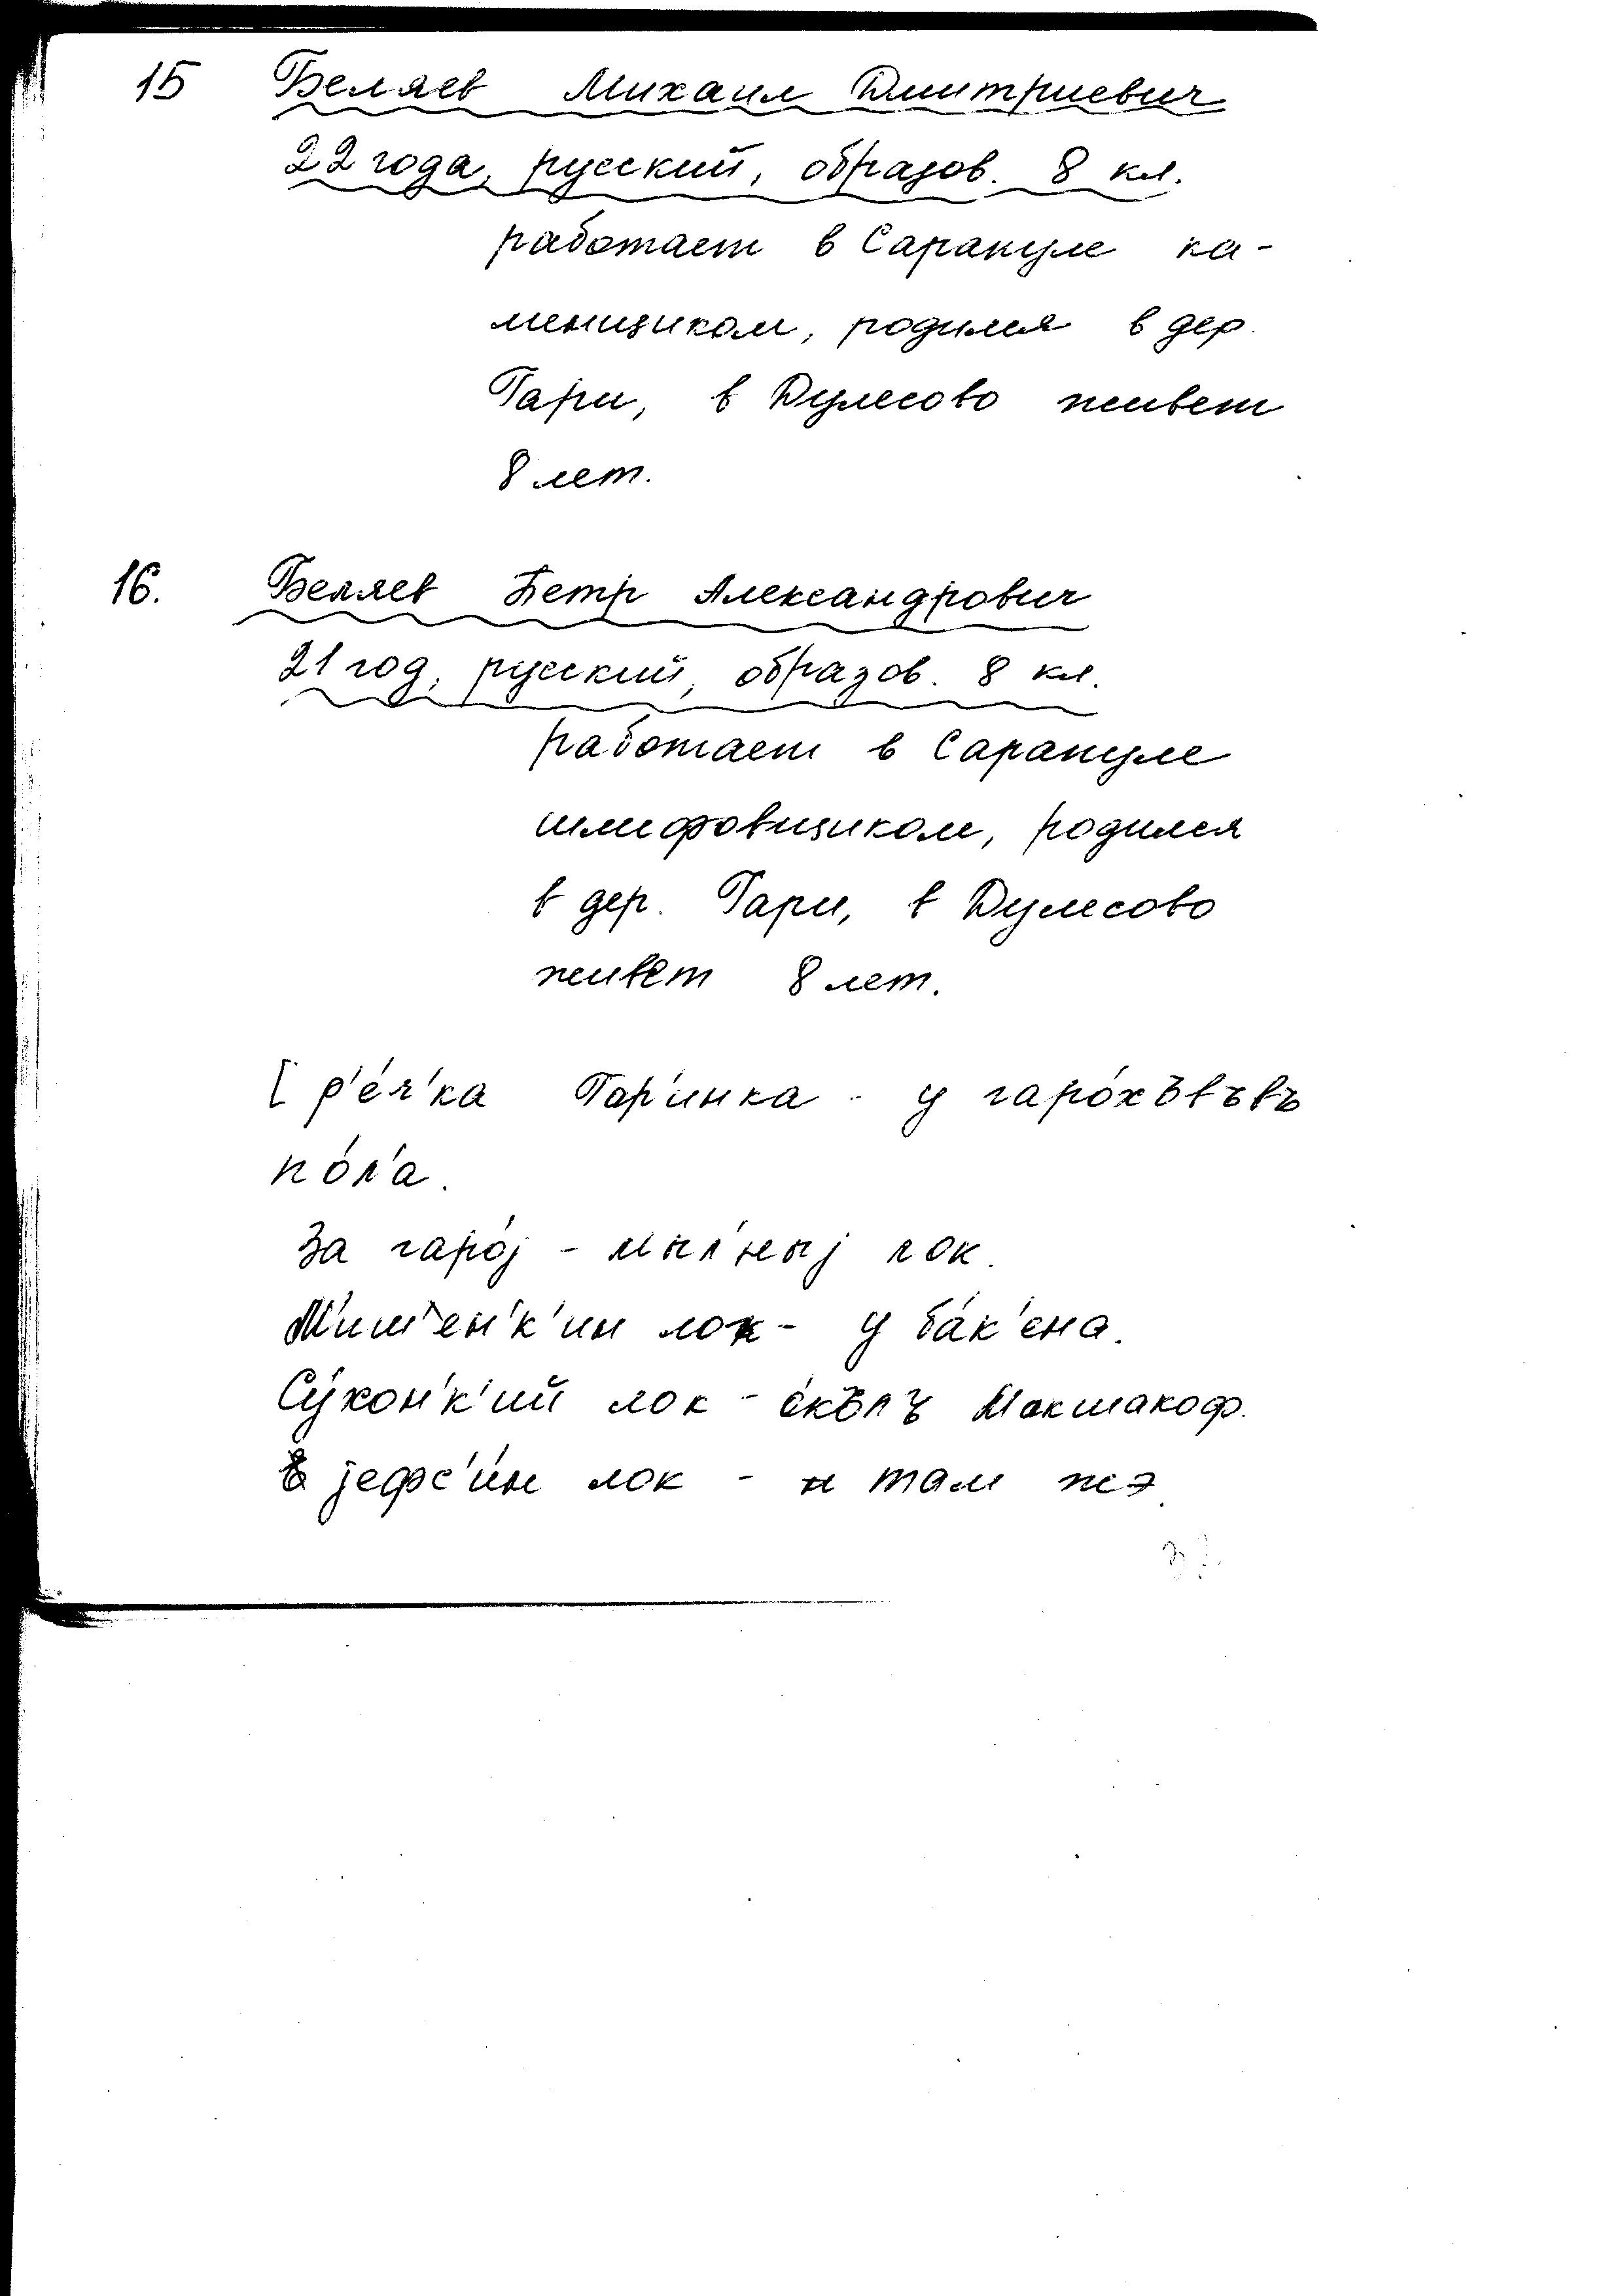 15 Беляев Михаил Дмитриевич
22 года, русский, образов. 8 кл.
работает в Сарапуле ка-
менщиком, родился в дер.
Гари, в Дулесово живет
8 лет.
16. Беляев Петр Александрович
21 год, русский, образов. 8 кл.
работает в Сарапуле
шлифовщиком, родился
в дер. Гари, в Дулесово
живет 8 лет.
[ р'е́ч'ка Гар'инка - у гаро́хъвъвъ
по́л'а.
За гаро́j - мыл'ныj лок.
М'иш'ен'к'ин лок - у ба́к'ена.
Су́хон'к'ий лок - о́кълъ Макшакоф.
jефс'и́н лок - там жэ.